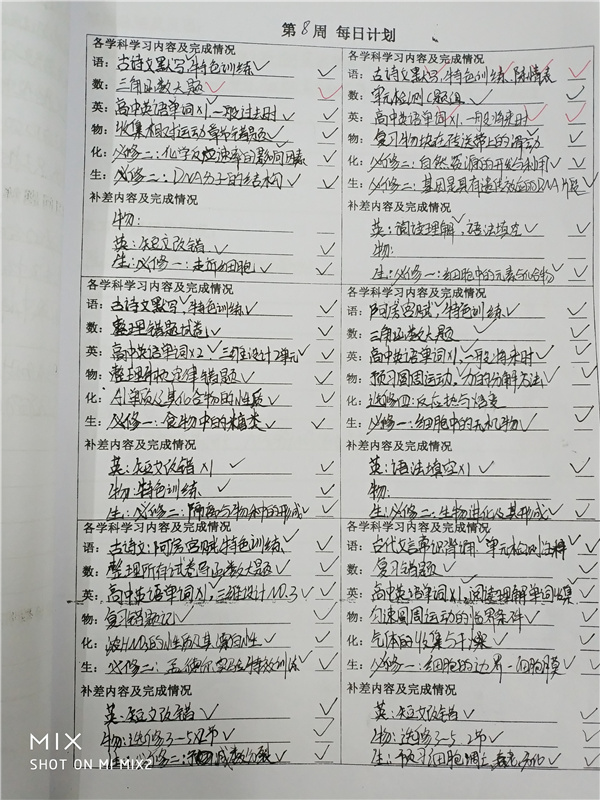 第8周 每日计划
各学科学习内容及完成情况
语：古诗文默写，特色训练✓ ✓
数：三角函数大题✓ ✓
英：高中英语单词×1，一般过去时✓ ✓
物：收集相对运动章节错题✓ ✓
化：必修二：化学反应速率的影响因素 ✓
生：必修二：DNA分子的结构✓ ✓
补差内容及完成情况
物：
英：短文改错✓ ✓
生：必修一：走近细胞✓ ✓
各学科学习内容及完成情况
语：古诗文默写，特色训练，陈情表 ✓
数：单元检测C题组✓ ✓
英：高中英语单词×1，一般将来时✓ ✓
物：复习物块在传送带上的滑动✓ ✓
化：必修二：自然资源的开发与利用✓ ✓
生：必修二：基因是具有遗传效应的DNA片段
补差内容及完成情况
英：阅读理解，语法填空✓ ✓
物：
生：必修一：细胞中的元素与化合物✓
各学科学习内容及完成情况
语：古诗文默写，特色训练✓ ✓
数：整理错题试卷✓ ✓
英：高中英语单词×2✓ 三维设计2单元 ✓
物：整理 定律错题✓ ✓
化：及其化合物的性质✓ ✓
生：必修一：食物中的糖类✓ ✓
补差内容及完成情况
英：短文改错×1 ✓ ✓
物：特色训练✓ ✓
生：必修二：隔离与物种的形成✓ ✓
各学科学习内容及完成情况
语：阿房宫赋，特色训练✓ ✓
数：三角函数大题✓ ✓
英：高中英语单词×1，一般将来时✓ ✓
物：预习圆周运动，力的分解方法✓ ✓
化：选修四：反应热与焓变 ✓
生：必修一：细胞中的无机物✓ ✓
补差内容及完成情况
英：语法填空×1✓ ✓
物：
生：必修二：生物进化及其形成✓ ✓
各学科学习内容及完成情况
语：古诗文：阿房宫赋，特色训练✓ ✓
数：整理所有试卷导函数大题✓ ✓
英：高中英语单词×1，三维设计M.3 ✓
物：复习错题记✓ ✓
化：性质及其 性✓ ✓
生：必修二：孟德尔实验特效训练✓ ✓
补差内容及完成情况
英：短文改错✓ ✓
物：选修3-5 节✓ ✓
生：必修二：减数分裂 ✓
各学科学习内容及完成情况
语：古代文言常识背诵✓ 单元检测 ✓
数：复习错题✓ ✓
英：高中英语单词×1，阅读理解单词收集
物：匀速圆周运动的临界条件✓ ✓
化：气体的收集与干燥✓ ✓
生：必修一：细胞的边界-细胞膜✓ ✓
补差内容及完成情况
英：短文改错✓ ✓
物：选修3-5 2节✓ ✓
生：预习细胞 衰老 ✓
MIX
SHOT ON MI MIX2